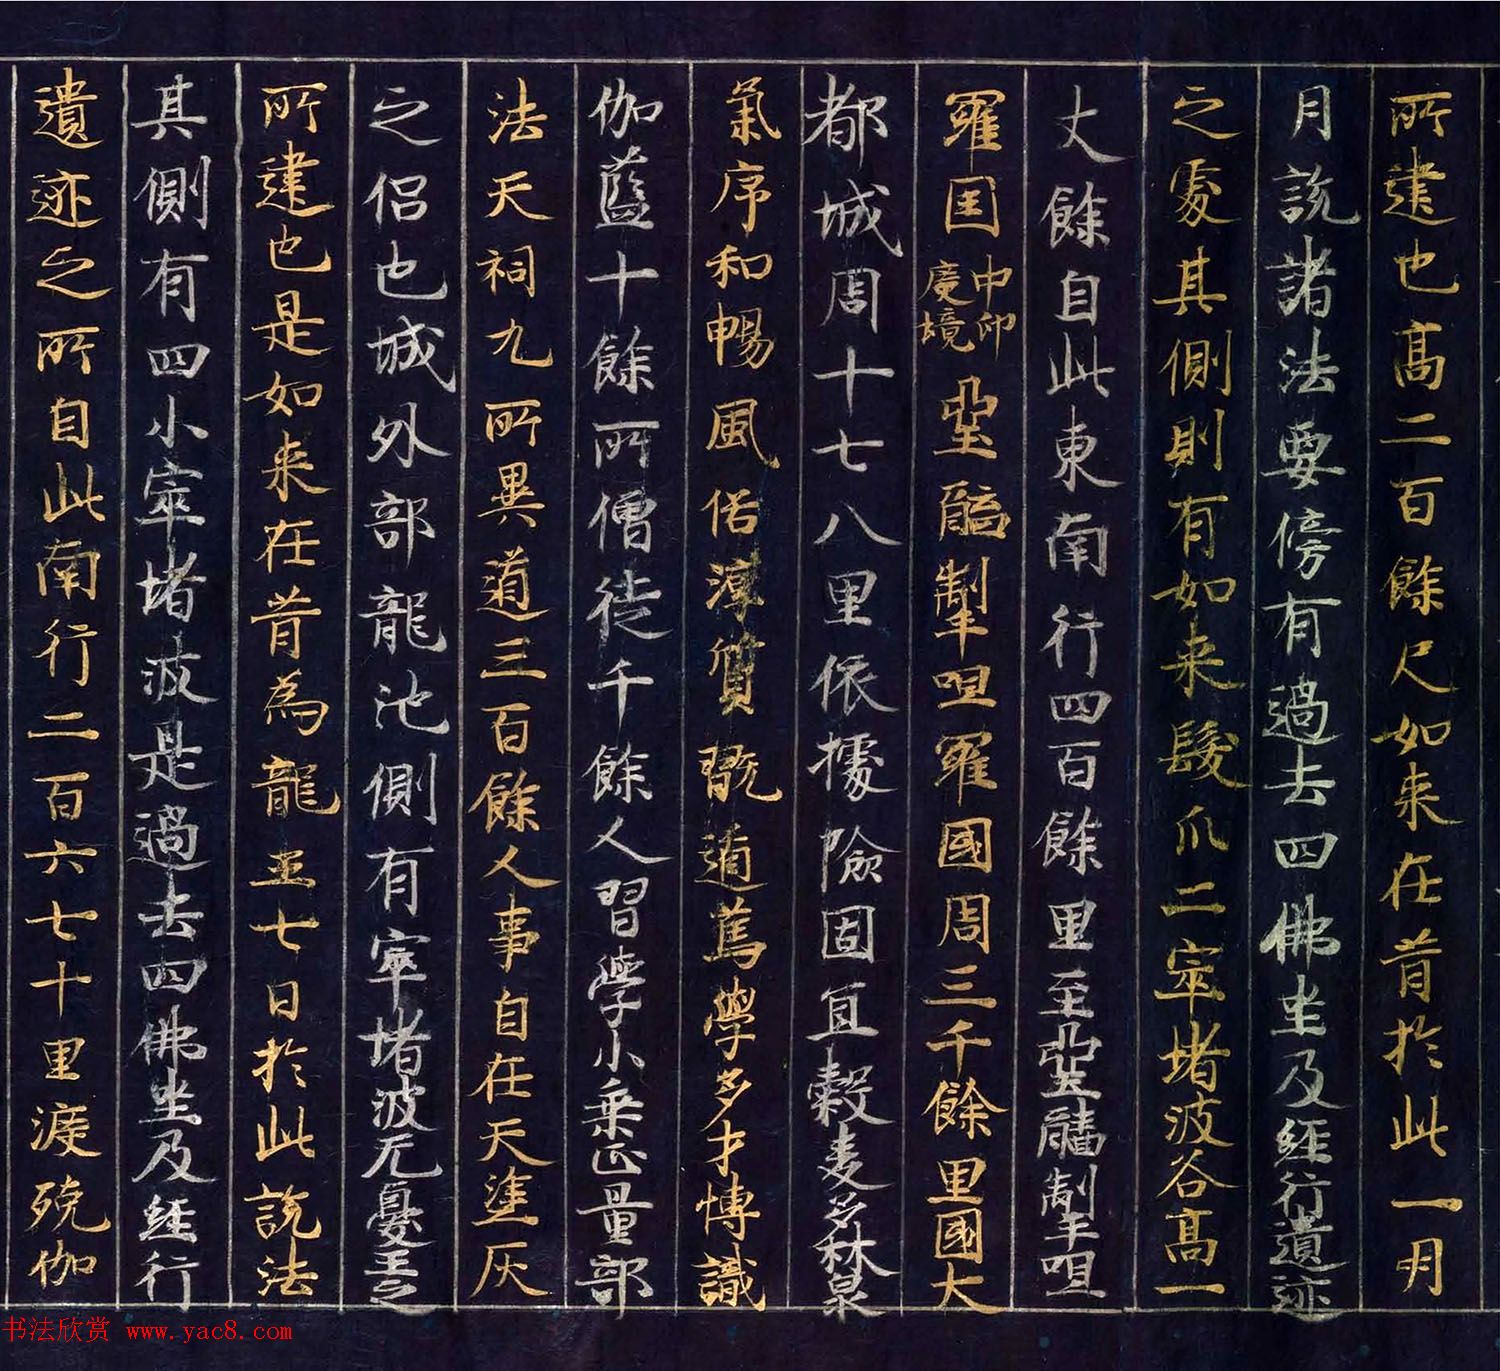 所建也高二百餘尺如来在昔於此一月
月説諸法要傍有過去四佛坐及經行遺迹
之處其側則有如来髮爪二窣堵波各高一
丈餘自此東南行四百餘里至堊醯掣呾
羅国中印廣境堊醯掣呾羅國周三千餘里國大
都城周十七八里依據險固宜穀麦多林泉
氣序和暢風俗淳質翫道篤學多才博識
伽藍十餘所僧徒千餘人習學小乗正量部
法天祠九所異道三百餘人事自在天塗灰
之侶也城外部龍池側有窣堵波无憂王之
所建也是如来在昔為龍王七日於此説法
其側有四小窣堵波是過去四佛坐及經行
遺迹之所自此南行二百六七十里渡殑伽
书法欣赏 www.yac8.com